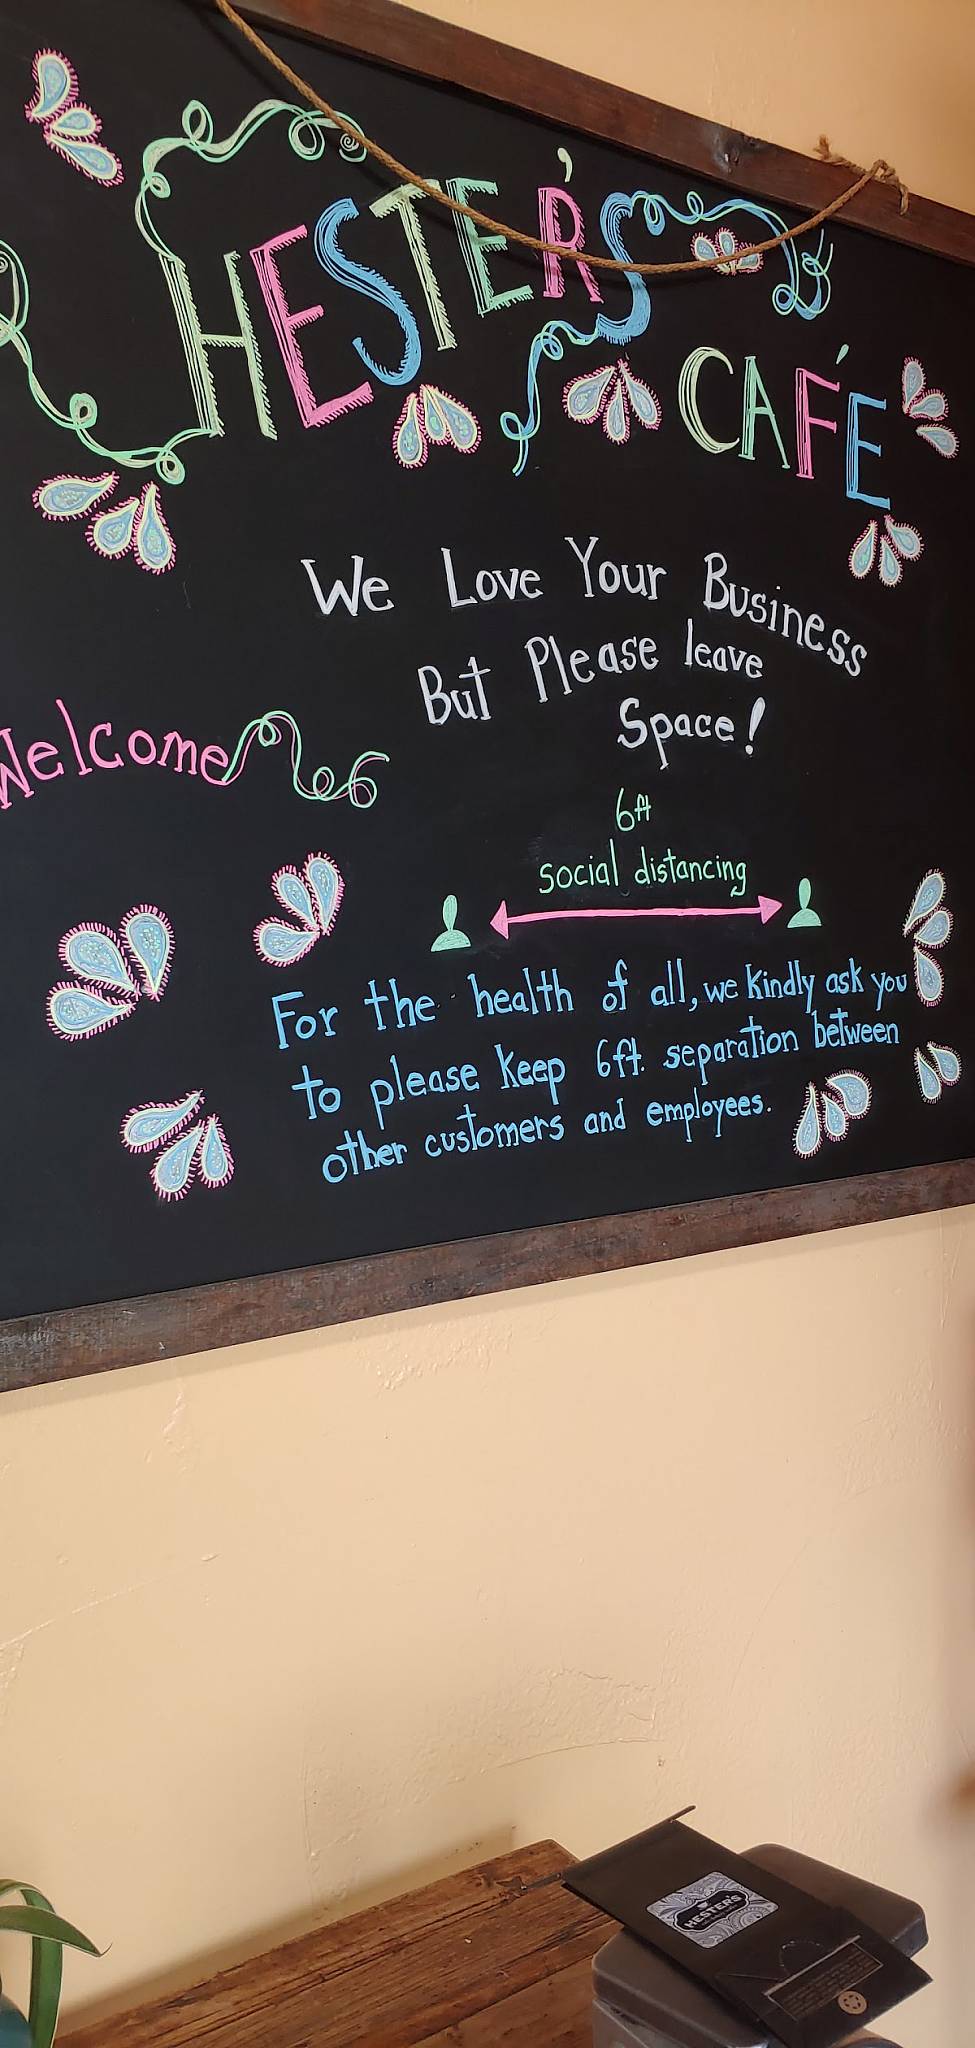 HESTER'S
CAFÉ
We Love Your Business
But Please leave
Space!
Welcome
6ft
social distancing
For the health of all, we kindly ask you
to please keep 6ft. separation between
other customers and employees.
HESTER'S